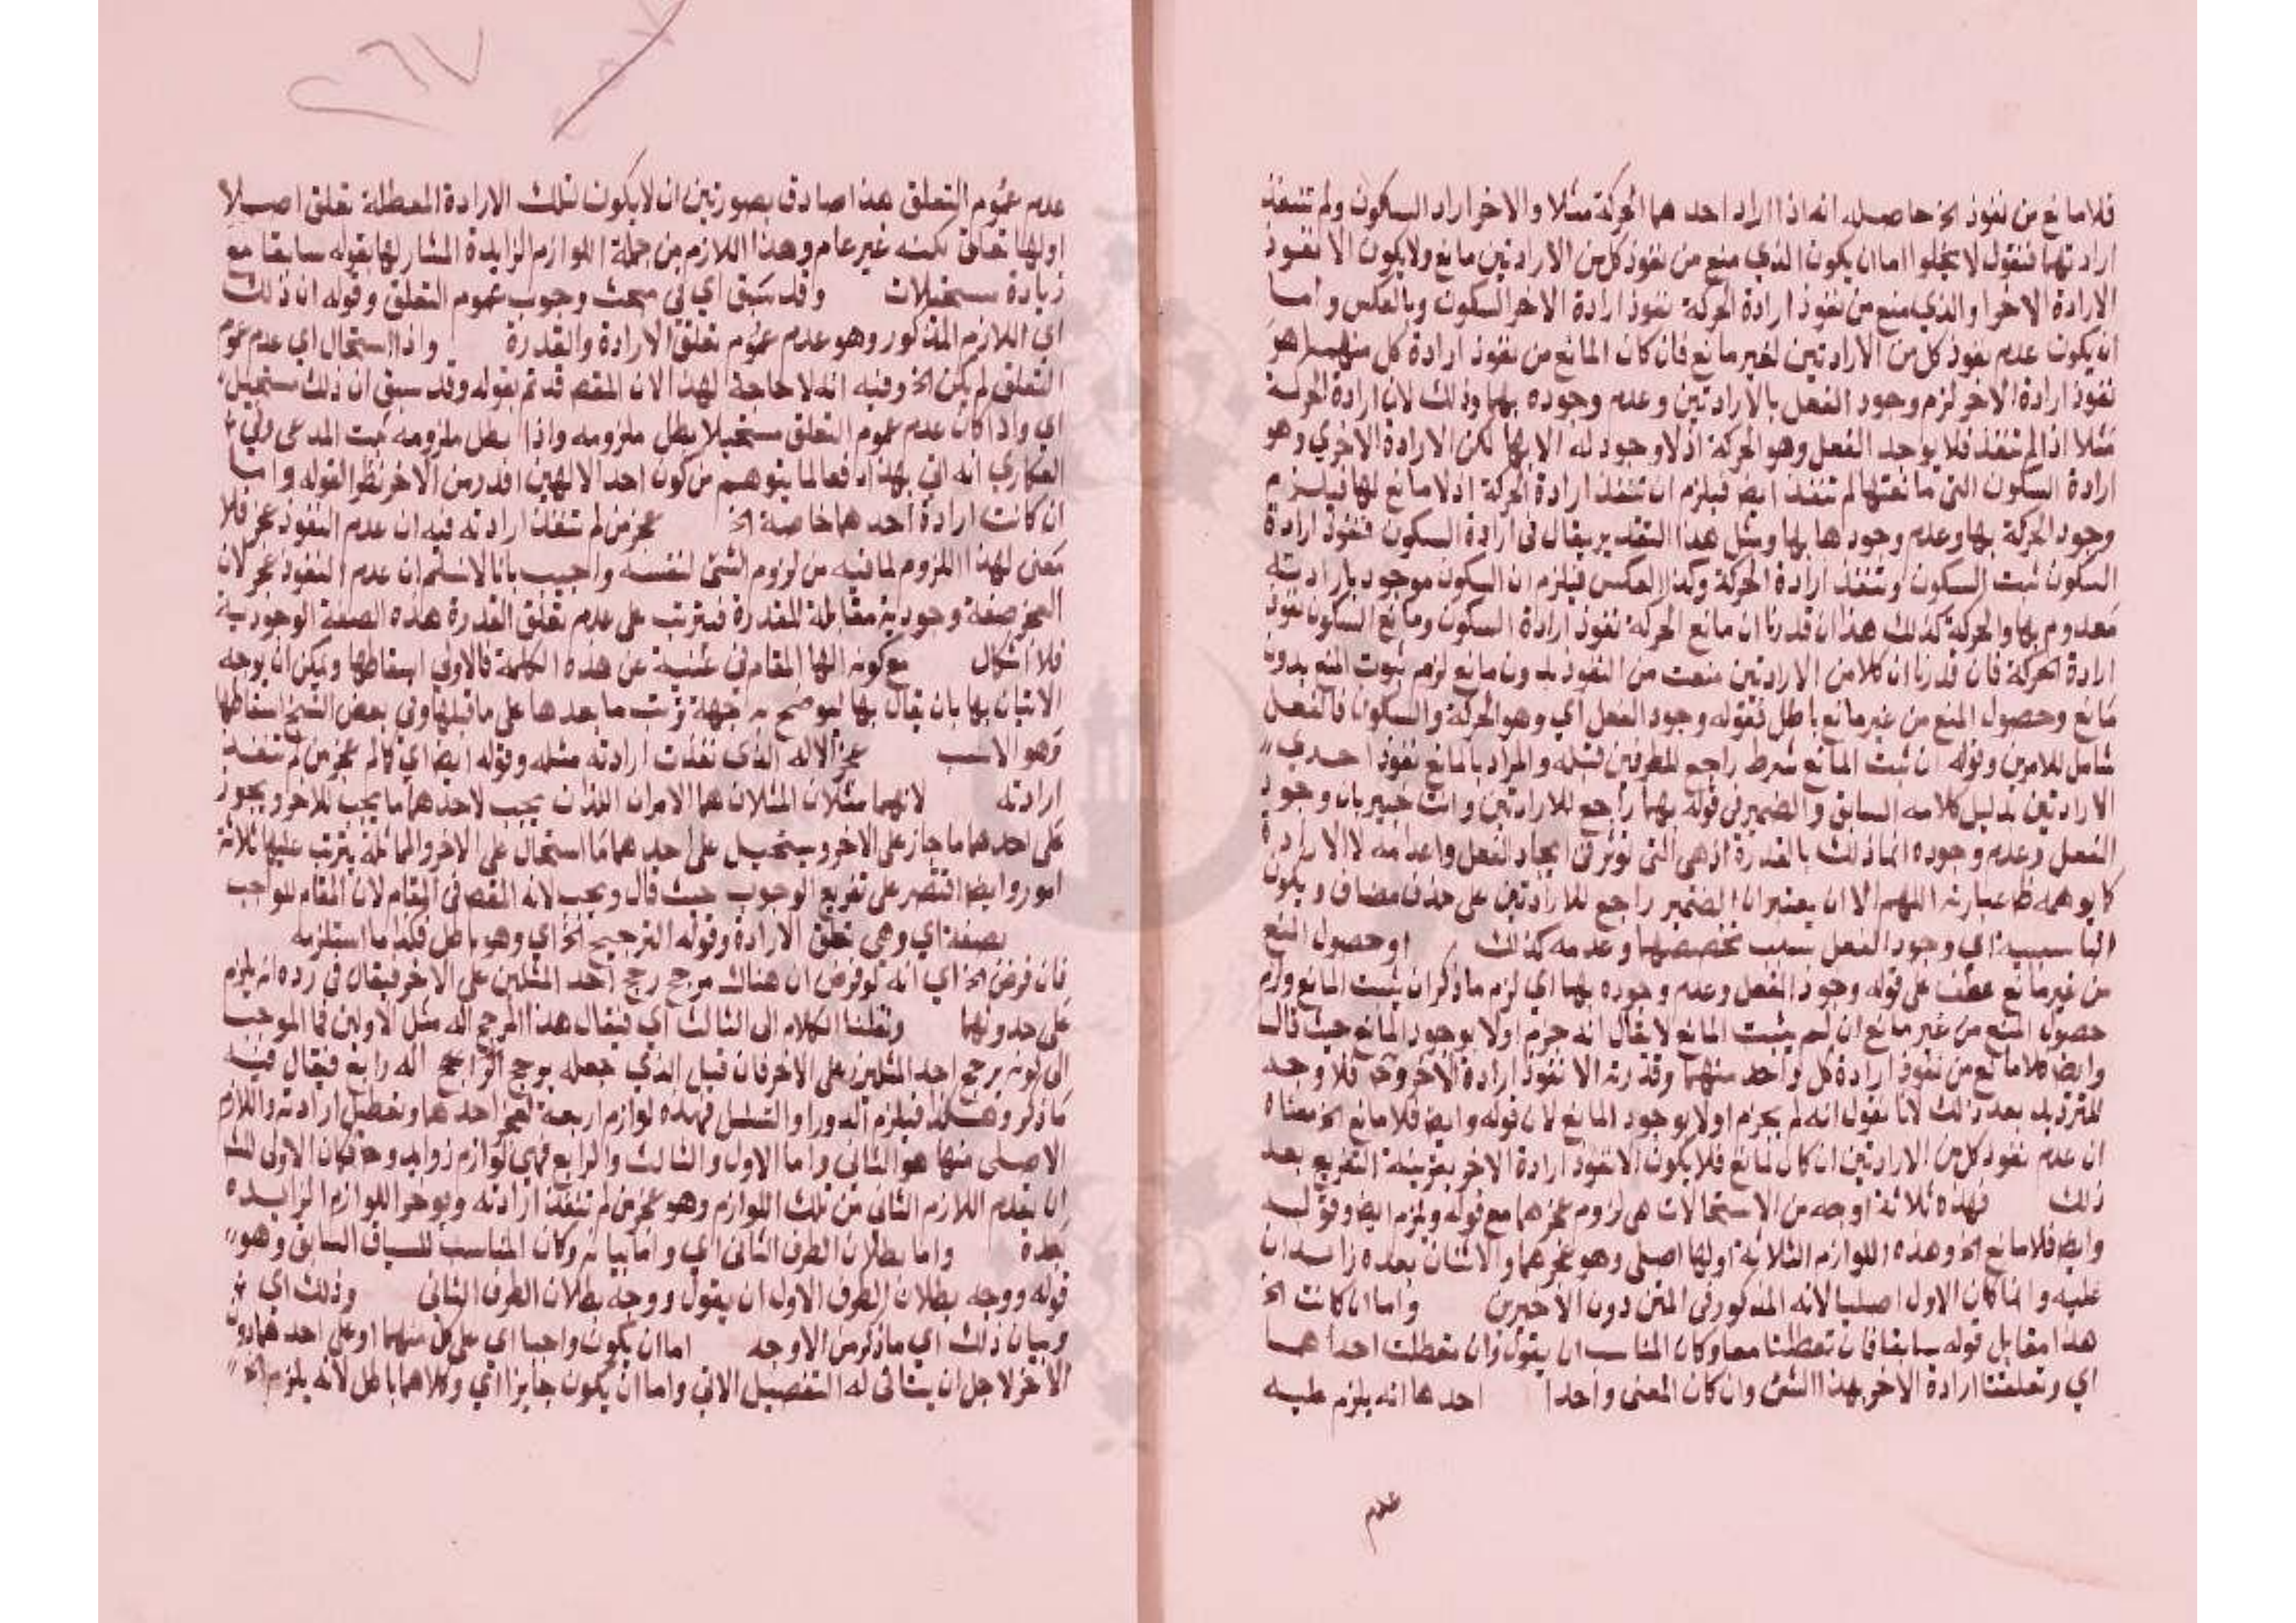 فلا مانع من نفوذ الخ حاصله انه اذا اراد احدهما الحركة مثلا والاخر اراد السكون ولم تنفذ
ارادتهما فنقول لا يخلوا اما ان يكون الذي منع من نفوذ كل من الارادتين مانع ولا يكون الا نفوذ
الارادة الاخرا والذي منع من نفوذ ارادة الحركة نفوذ ارادة الاخر السكون وبالعكس واما
ان يكون عدم نفوذ كل من الارادتين لغير مانع فان كان المانع من نفوذ ارادة كل منهما هو
نفوذ ارادة الاخر لزم وجود الفعل بالارادتين وعدم وجوده بهما وذلك لان ارادة الحركة
مثلا اذا لم تنفذ فلا يوجد الفعل وهو الحركة اذ لا وجود له الا بها لكن الارادة الاخري وهو
ارادة السكون التي مانعتها لم تنفذ ايضا فيلزم ان تنفذ ارادة الحركة اذ لا مانع لها فيلزم
وجود الحركة بها وعدم وجودها بها ومثل هذا التقدير يقال في ارادة السكون فنفوذ ارادة
السكون ثبت السكون وتنفذ ارادة الحركة وكذا العكس فيلزم ان السكون موجود بارادته
معدوم بها والحركة كذلك هذا ان قدرنا ان مانع الحركة نفوذ ارادة السكون ومانع السكون نفوذ
ارادة الحركة فان قدرنا ان كلا من الارادتين منعت من النفوذ بدون مانع لزم ثبوت المنع بدون
مانع وحصول المنع من غير مانع باطل فقوله وجود الفعل اي وهو الحركة والسكون فالفعل
شامل للامرين وقوله ان ثبت المانع شرط راجع للطرفين قبله والمراد بالمانع نفوذ احدي
الارادتين بدليل كلامه السابق والضمير في قوله بهما راجع للارادتين وانت خبير بان وجود
الفعل وعدم وجوده انما ذلك بالقدرة اذ هي التي تؤثر في ايجاد الفعل واعدامه لا الارادة
كما يوهمه ظ عبارته اللهم الا ان يعتبر ان الضمير راجع للارادتين على حذف مضاف ويكون
الباء سببية اي وجود الفعل بسبب تخصيصهما وعدمه كذلك او حصول المنع
من غير مانع عطف على قوله وجود الفعل وعدم وجوده بهما اي لزم ما ذكر ان يثبت المانع ولزم
حصول المنع من غير مانع ان لم يثبت المانع لا يقال انه جزم اولا بوجود المانع حيث قال
وايضا فلا مانع من نفوذ ارادة كل واحد منهما وقدرته الا نفوذ ارادة الاخر وح فلا وجه
للترديد بعد ذلك لانا نقول انه لم يجزم اولا بوجود المانع لان قوله وايضا فلا مانع الخ معناه
ان عدم نفوذ كل من الارادتين ان كان لمانع فلا يكون الا نفوذ ارادة الاخر بقرينة التفريع بعد
ذلك فهذه ثلاثة اوجه من الاستحالات هي لزوم عجزهما مع قوله ويلزم ايضا وقوله
وايضا فلا مانع الخ وهذه اللوازم الثلاثة اولها اصلي وهو عجزهما والاثنان بعده زائدان
عليه وانما كان الاول اصليا لانه المذكور في المتن دون الاخيرين واما ان كانت الخ
هذا مقابل قوله سابقا فان تعطلتا معا وكان المناسب ان يقول وان تعطلت احداهما
اي وتعلقت ارادة الاخر بهذا الشئ وان كان المعنى واحدا احدها انه يلزم عليه
عدم
عدم عموم التعلق هذا صادق بصورتين ان لا يكون لتلك الارادة المعطلة تعلق اصلا
اولها تعلق لكنه غير عام وهذا اللازم من جملة اللوازم الزايدة المشار لها بقوله سابقا مع
زيادة مستحيلات وقد سبق اي في مبحث وجوب عموم التعلق وقوله ان ذلك
اي اللازم المذكور وهو عدم عموم تعلق الارادة والقدرة واذا استحال اي عدم عموم
التعلق لم يكن الخ وفيه انه لا حاجة لهذا لان المقصد قد تم بقوله وقد سبق ان ذلك مستحيل
اي واذا كان عدم عموم التعلق مستحيلا بطل ملزومه واذا بطل ملزومه ثبت المدعى وفي
العكاري انه اتي بهذا دفعا لما يتوهم من كون احد الالهين اقدر من الاخر نظرا لقوله واما
ان كانت ارادة احدهما خاصة الخ عجز من لم تنفذ ارادته فيه ان عدم النفوذ عجز فلا
معنى لهذا اللزوم لما فيه من لزوم الشئ لنفسه واجيب بانا لا نسلم ان عدم النفوذ عجز لان
العجز صفة وجودية مقابلة للقدرة فيترتب على عدم تعلق القدرة هذه الصفة الوجودية
فلا اشكال مع كونه الها المقام في غنية عن هذه الكلمة فالاولى اسقاطها ويمكن ان يوجه
الاتيان بها بان يقال بها ليوضح به جهة ترتب ما بعدها على ما قبلها وفي بعض النسخ اسقاطها
وهو الانسب عجز الاله الذي نفذت ارادته مثله وقوله ايضا اي كالم عجز من لم تنفذ
ارادته لانهما مثلان المثلان هما الامران اللذان يجب لاحدهما ما يجب للاخر ويجوز
على احدهما ما جاز على الاخر ويستحيل على احدهما ما استحال على الاخر والمماثلة يترتب عليها ثلاثة
امور وايضا اقتصر على تفريع الوجوب حيث قال ويجب لانه المقصد في المقام لان المقام للواجب
بصفة اي وهي تعلق الارادة وقوله الترجيح الخ اي وهو باطل فكذا ما استلزمه
فان فرض الخ اي انه لو فرض ان هناك مرجح رجح احد المثلين على الاخر فيقال في رده انه يلزم
على حدوثهما ونقلنا الكلام الى الثالث اي فيقال هذا المرجح اله مثل الاولين فما الموجب
الى كونه يرجح احد المثلين على الاخر فان قيل الذي جعله يرجح الراجح اله رابع فيقال فيه
ما ذكر وهكذا فيلزم الدور او التسلسل فهذه لوازم اربعة لعجز احدهما وتعطيل ارادته واللازم
الاصلي منها هو الثاني واما الاول والثالث والرابع فهي لوازم زوايد وح فكان الاولى للش
ان يقدم اللازم الثاني من تلك اللوازم وهو عجز من لم تنفذ ارادته ويوخر اللوازم الزايده
بعده واما بطلان الطرف الثاني اي واما بيانه وكان المناسب للسياق السابق وهو
قوله ووجه بطلان الطرف الاول ان يقول ووجه بطلان الطرف الثاني وذلك اي
وبيان ذلك اي ما ذكر من الاوجه اما ان يكون واجبا اي على كل منهما او على احدهما دون
الاخر لاجل ان يتاتى له التفصيل الاتي واما ان يكون جايزا اي وكلاهما باطل لانه يلزم الخ